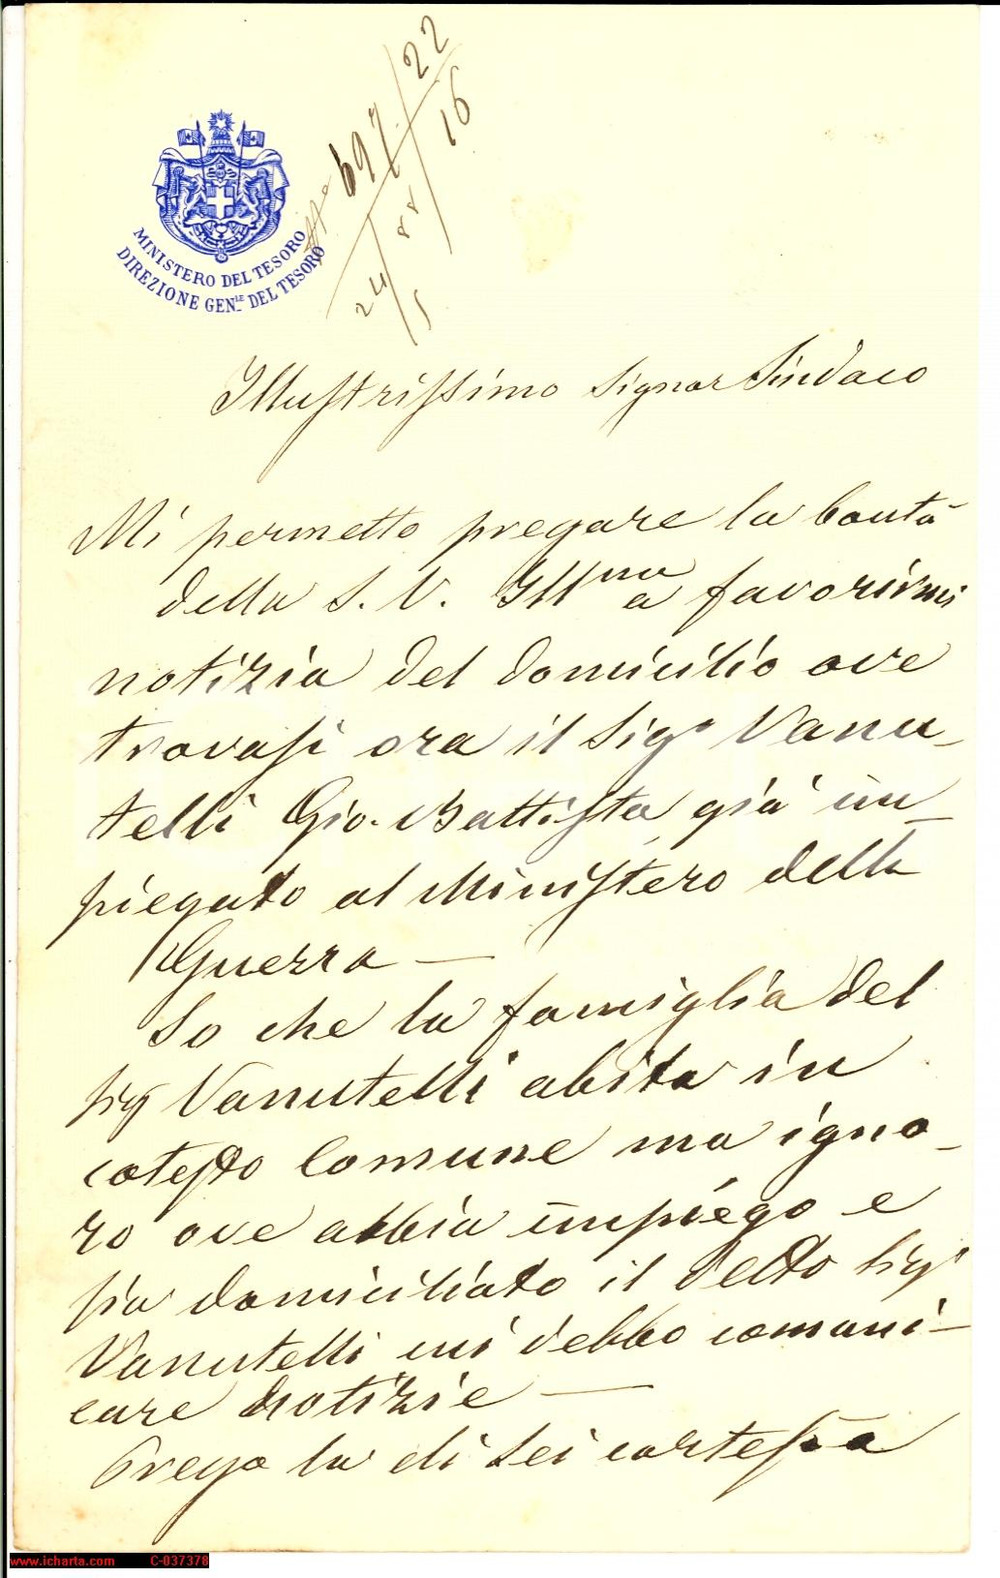 697 22
16
24 88
5
MINISTERO DEL TESORO
DIREZIONE GEN.LE DEL TESORO
Illustrissimo Signor Sindaco
Mi permetto pregare la bontà
della S. V. Ill.ma a favorirmi
notizia del domicilio ove
trovasi ora il Sigr Vanu-
telli Gio. Battista già im-
piegato al Ministero della
Guerra —
So che la famiglia del
sig Vanutelli abita in
cotesto Comune ma igno-
ro ove abbia impiego e
sia domiciliato il detto Sigr
Vanutelli cui debbo comuni-
care notizie —
Prego la di Lei cortesia
www.icharta.com C-037378